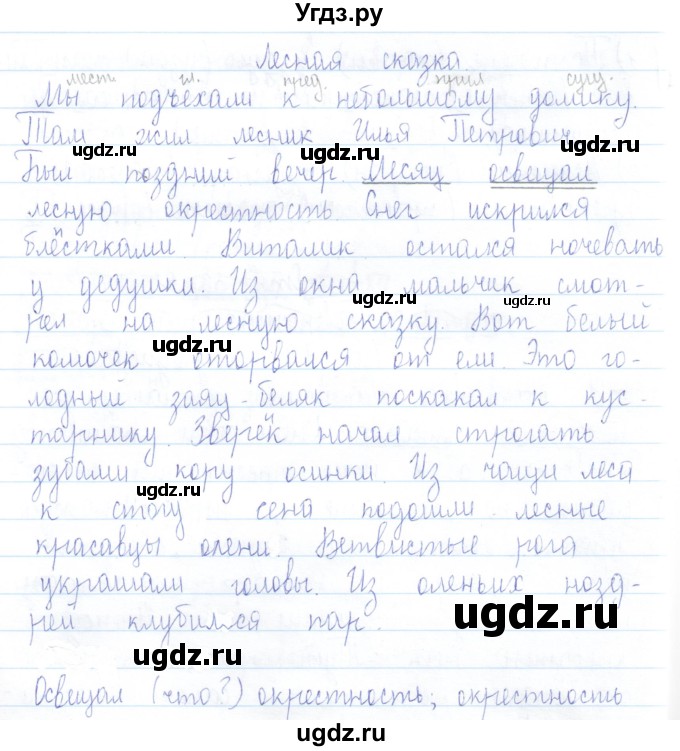 Угдз.ру
Лесная сказка.
мест. гл. пред. прил сущ.
Мы подъехали к небольшому домику.
Там жил лесник Илья Петрович.
Был поздний вечер. Месяц освещал
лесную окрестность. Снег искрился
блёстками. Виталик остался ночевать
у дедушки. Из окна мальчик смот-
рел на лесную сказку. Вот белый
комочек оторвался от ели. Это го-
лодный заяц-беляк поскакал к кус-
тарнику. Зверёк начал строгать
зубами кору осинки. Из чащи леса
к стогу сена подошли лесные
красавцы олени. Ветвистые рога
украшали головы. Из оленьих нозд-
рей клубился пар.
Освещал (что?) окрестность; окрестность
ugdz.ru
ugdz.ru
ugdz.ru
ugdz.ru
ugdz.ru
ugdz.ru
ugdz.ru
ugdz.ru
ugdz.ru
ugdz.ru